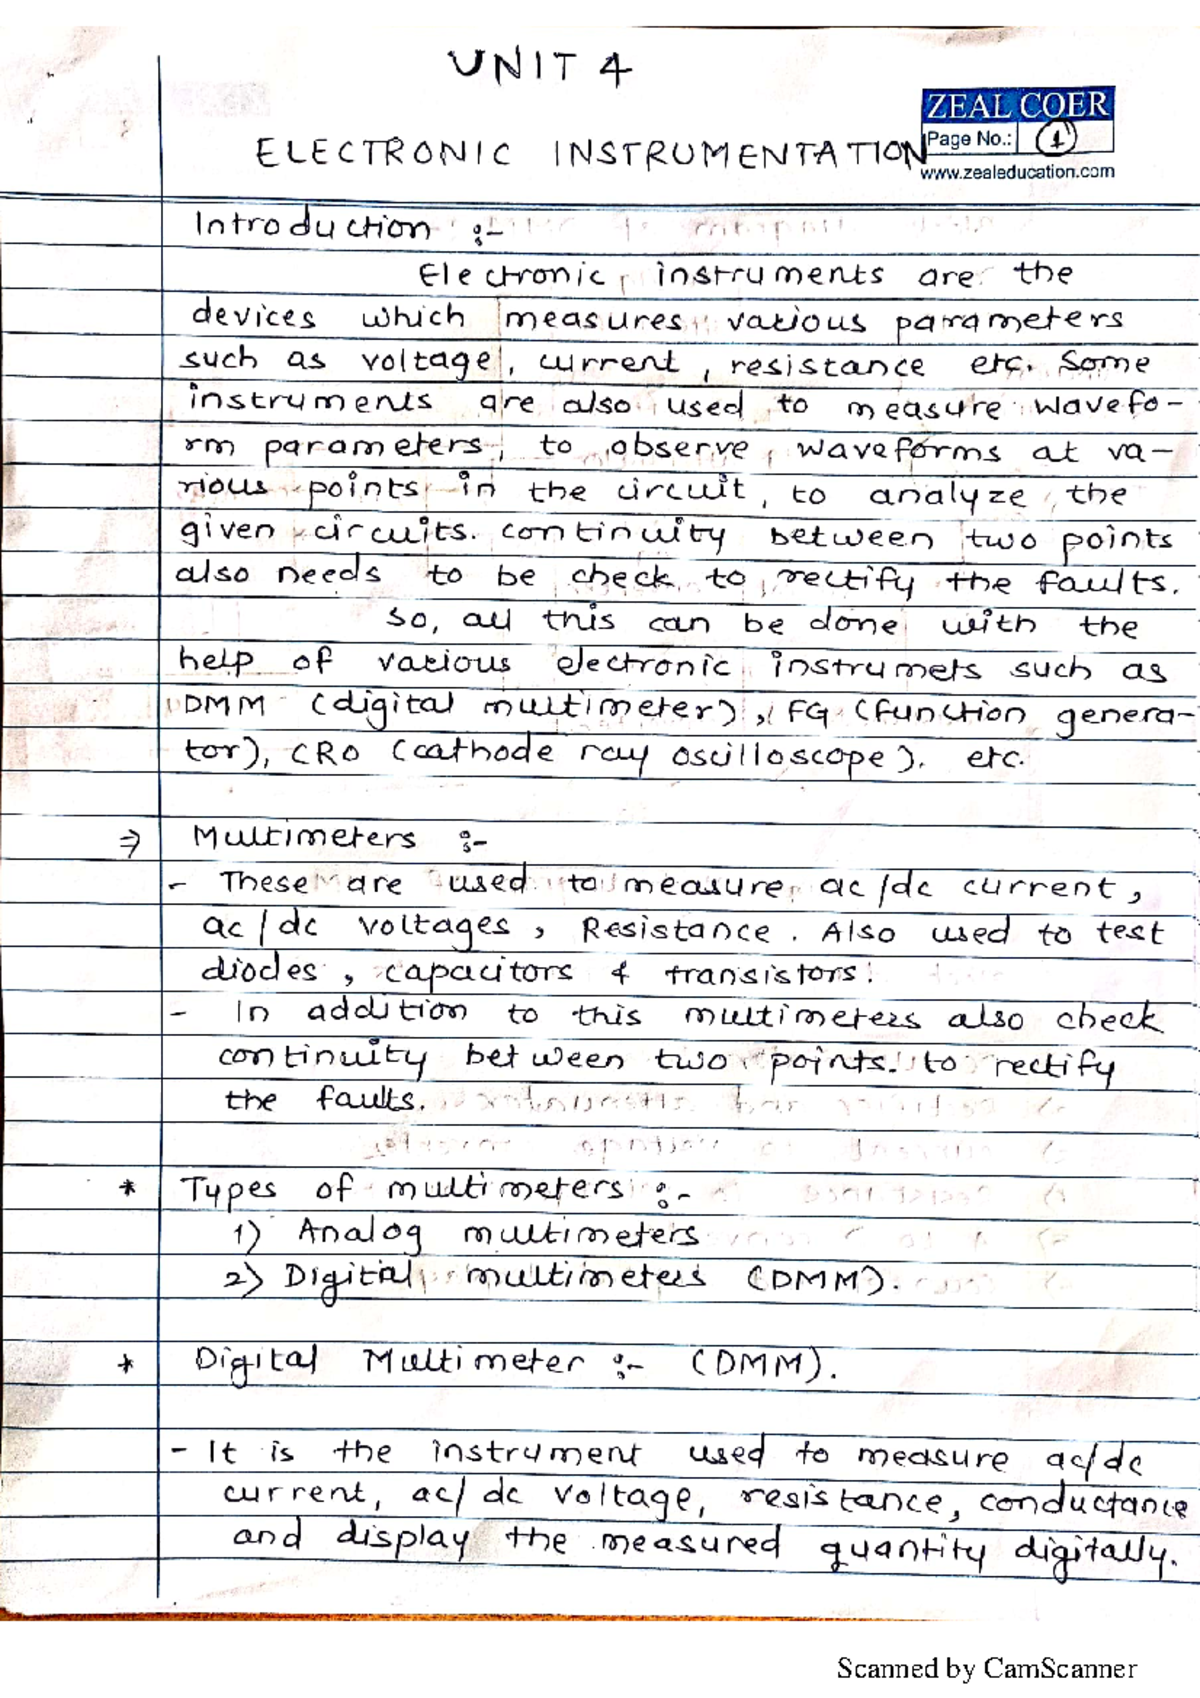 UNIT 4
ZEAL COER
Page No.: 1
ELECTRONIC INSTRUMENTATION
www.zealeducation.com
Introduction :-
Electronic instruments are the
devices which measures various parameters
such as voltage, current, resistance etc. Some
instruments are also used to measure wavefo-
rm parameters, to observe waveforms at va-
rious points in the circuit, to analyze the
given circuits. continuity between two points
also needs to be check to rectify the faults.
So, all this can be done with the
help of various electronic instrumets such as
DMM (digital multimeter), FG (function genera-
tor), CRO (cathode ray oscilloscope). etc.
⇒ Multimeters :-
- These are used to measure ac/dc current,
ac/dc voltages, Resistance. Also used to test
diodes, capacitors & transistors.
- In addition to this multimeters also check
continuity between two points. to rectify
the faults.
* Types of multimeters :-
1) Analog multimeters
2) Digital multimeters (DMM).
* Digital Multimeter :- (DMM).
- It is the instrument used to measure ac/dc
current, ac/dc voltage, resistance, conductance
and display the measured quantity digitally.
Scanned by CamScanner